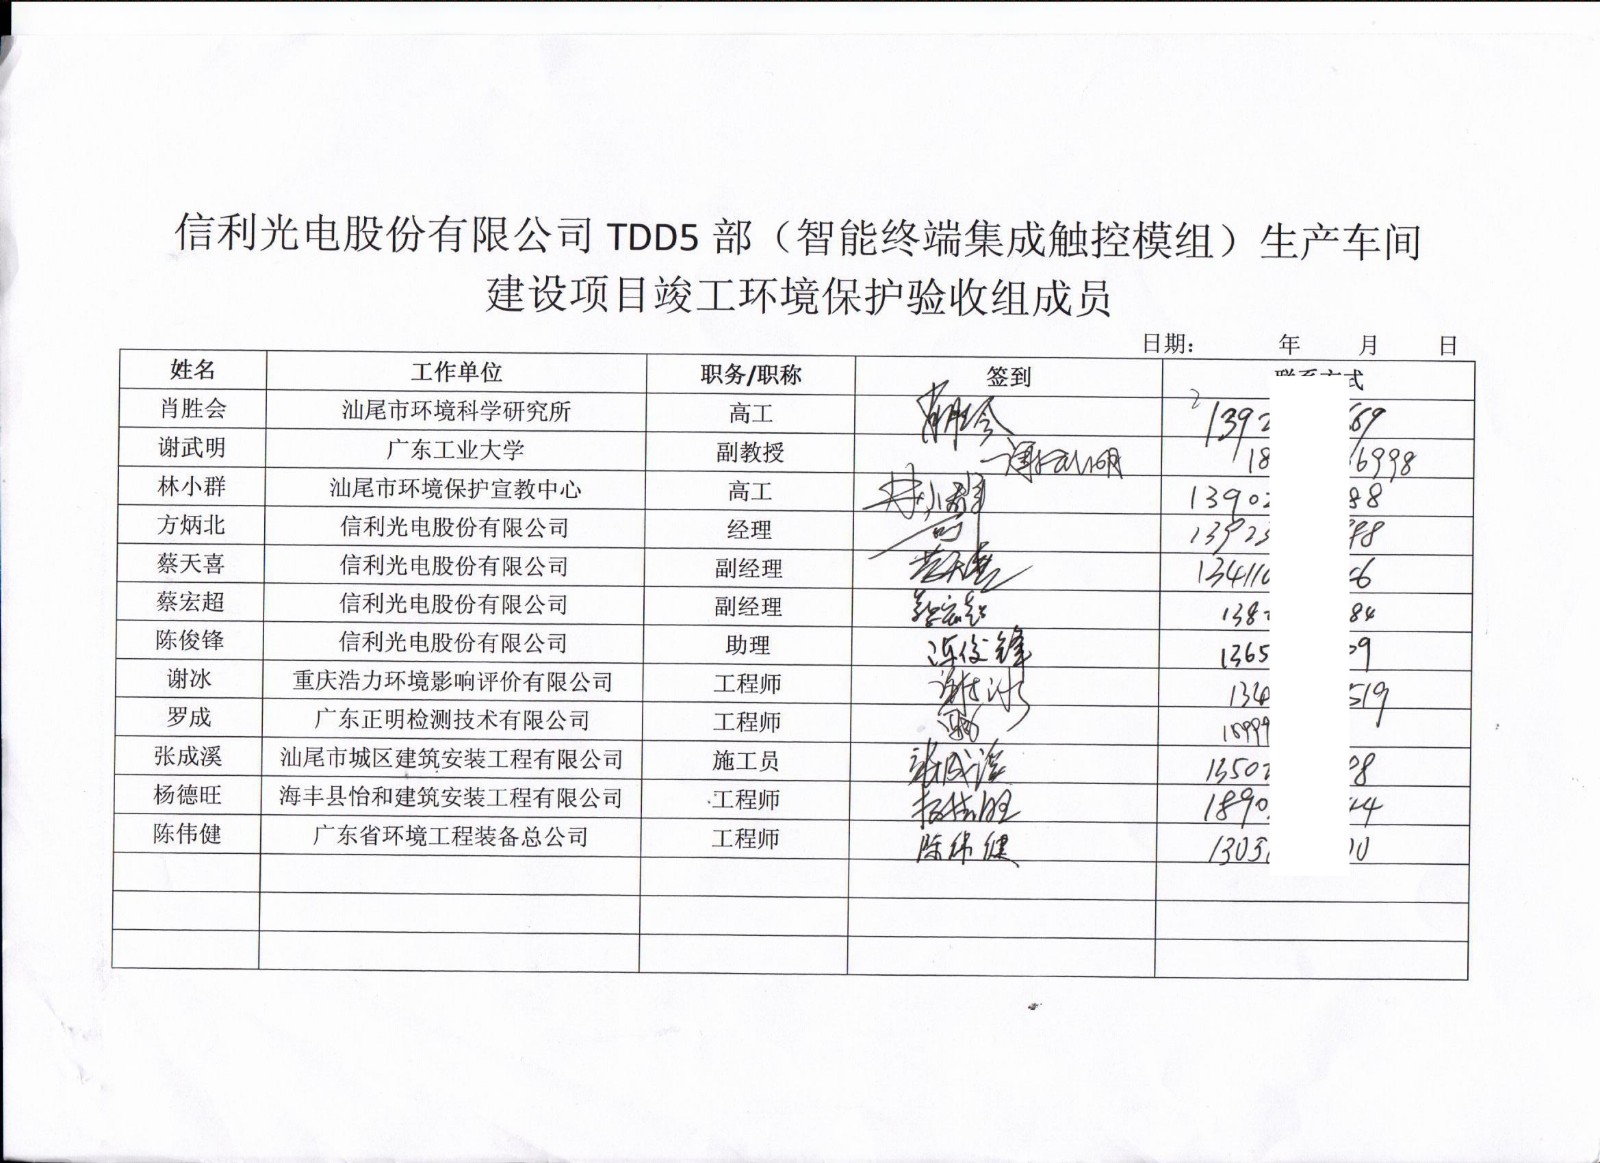 信利光电股份有限公司 TDD5 部（智能终端集成触控模组）生产车间
建设项目竣工环境保护验收组成员
日期： 年 月 日
姓名 工作单位 职务/职称 签到 联系方式
肖胜会 汕尾市环境科学研究所 高工 肖胜会 1392 69
谢武明 广东工业大学 副教授 谢武明 18 6998
林小群 汕尾市环境保护宣教中心 高工 林小群 13902 88
方炳北 信利光电股份有限公司 经理 13923 88
蔡天喜 信利光电股份有限公司 副经理 蔡天喜 134110 6
蔡宏超 信利光电股份有限公司 副经理 蔡宏超 138 84
陈俊锋 信利光电股份有限公司 助理 陈俊锋 1365 09
谢冰 重庆浩力环境影响评价有限公司 工程师 谢冰 134 519
罗成 广东正明检测技术有限公司 工程师 18999
张成溪 汕尾市城区建筑安装工程有限公司 施工员 张成溪 13502 08
杨德旺 海丰县怡和建筑安装工程有限公司 工程师 杨德旺 1890 44
陈伟健 广东省环境工程装备总公司 工程师 陈伟健 1303 00